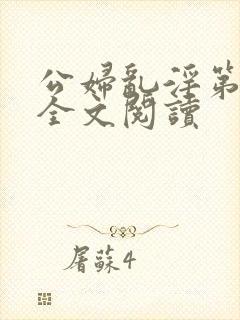 公婦亂淫第
全文閱讀
屠蘇4